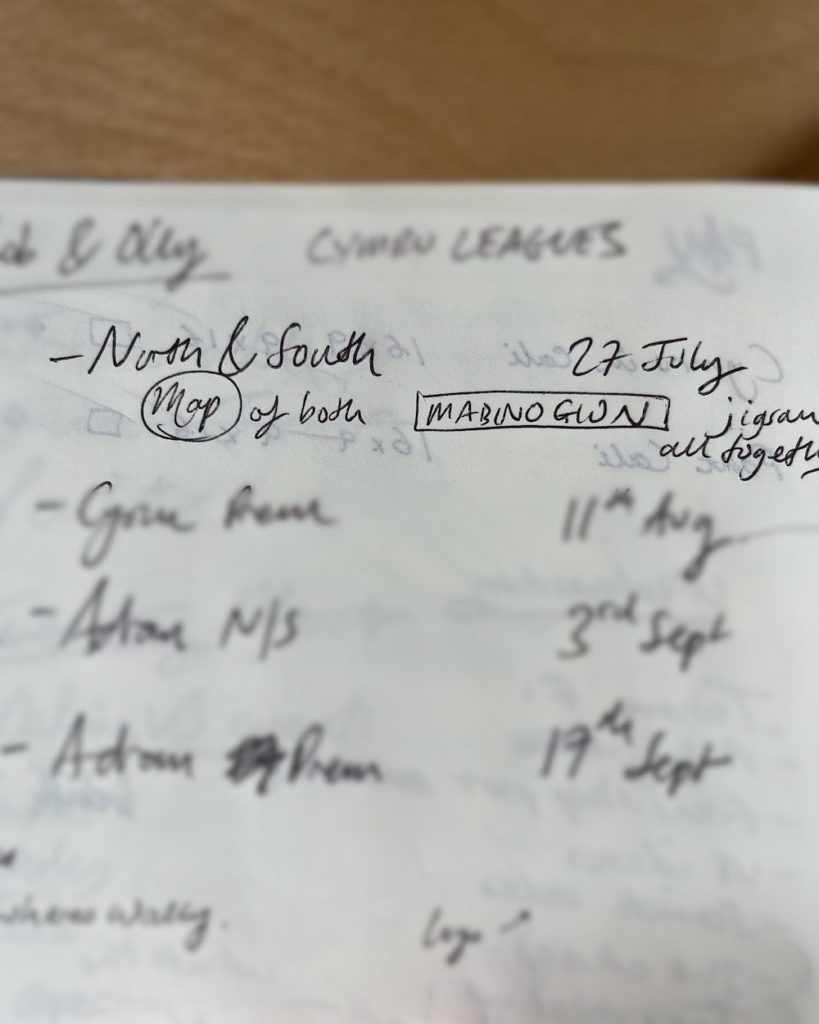 & Olly CYMRU LEAGUES
- North & South 27 July
Map of both MABINOGION jigsaw
all togeth
- Prem 11th Aug
- N/S 3rd Sept
- Prem 19th Sept
wheres wally.
logo